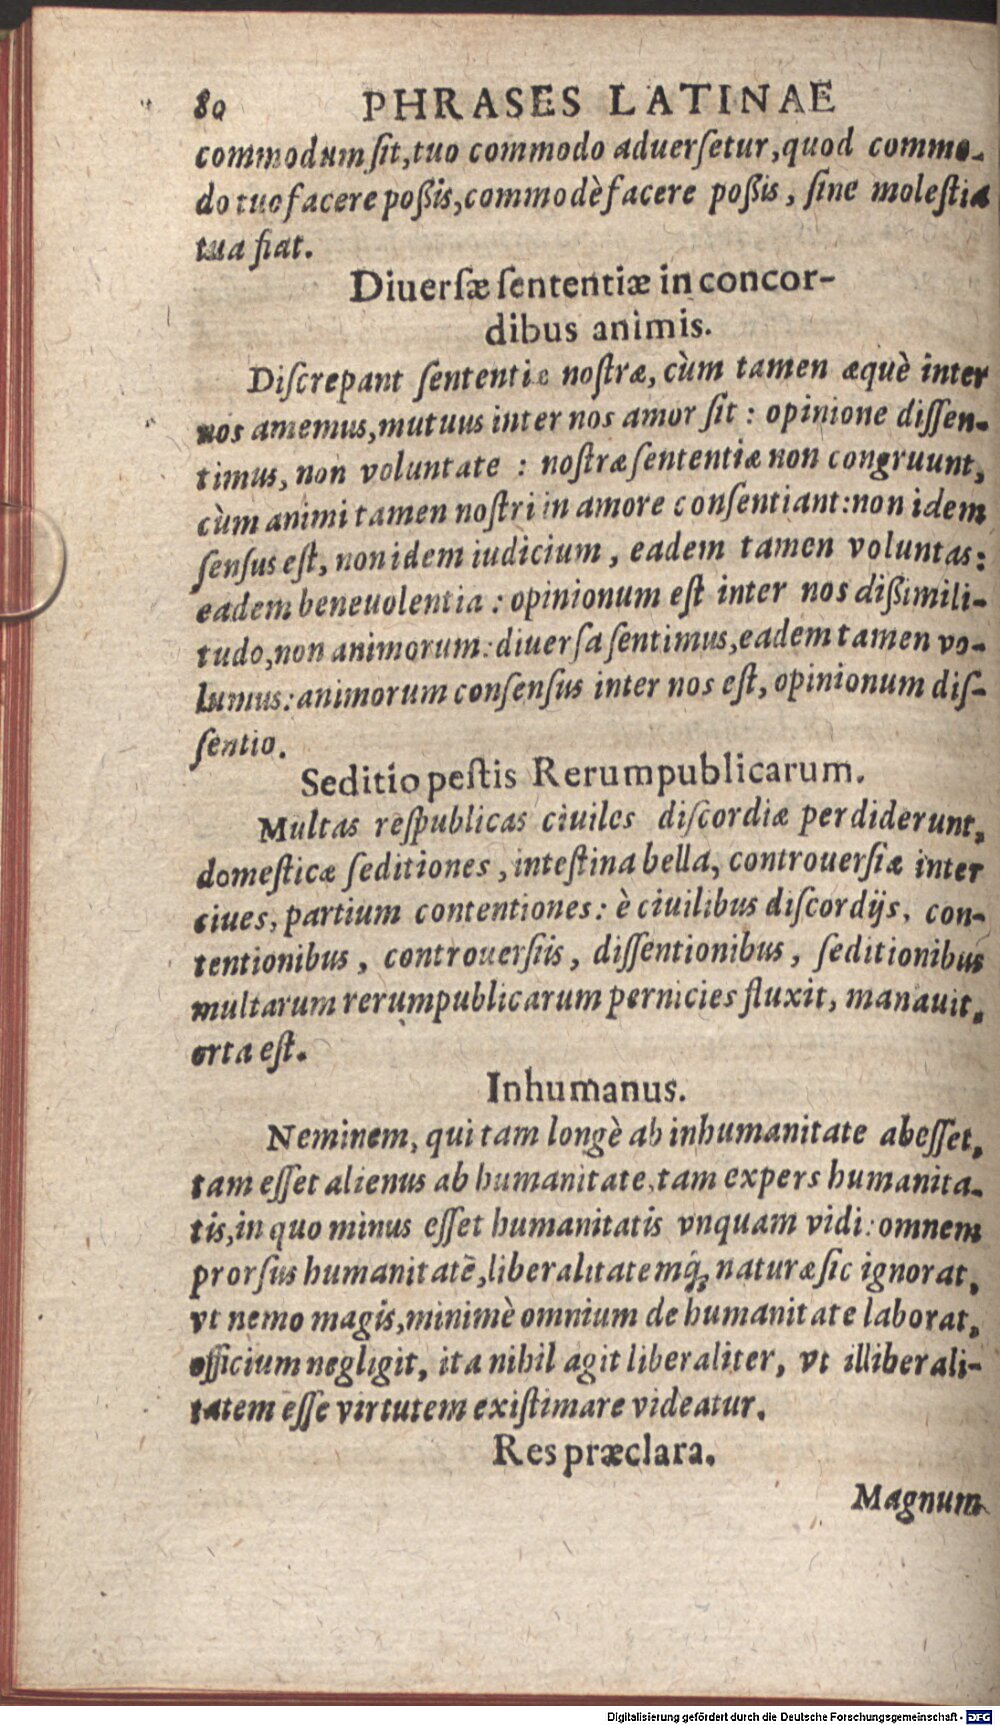 80 PHRASES LATINAE
commodum ſit, tuo commodo aduerſetur, quod commo-
do tuo facere poßis, commodè facere poßis, ſine moleſtia
tua fiat.
Diuerſæ ſententiæ in concor-
dibus animis.
Diſcrepant ſententiæ noſtræ, cùm tamen æquè inter
nos amemus, mutuus inter nos amor ſit : opinione diſſen-
timus, non voluntate : noſtræ ſententiæ non congruunt,
cùm animi tamen noſtri in amore conſentiant: non idem
ſenſus eſt, non idem iudicium, eadem tamen voluntas:
eadem beneuolentia : opinionum eſt inter nos dißimili-
tudo, non animorum: diuerſa ſentimus, eadem tamen vo-
lumus: animorum conſenſus inter nos eſt, opinionum diſ-
ſentio.
Seditio peſtis Rerumpublicarum.
Multas reſpublicas ciuiles diſcordiæ perdiderunt,
domeſticæ ſeditiones, inteſtina bella, controuerſiæ inter
ciues, partium contentiones: è ciuilibus diſcordijs, con-
tentionibus, controuerſiis, diſſentionibus, ſeditionibus
multarum rerumpublicarum pernicies fluxit, manauit,
orta eſt.
Inhumanus.
Neminem, qui tam longè ab inhumanitate abeſſet,
tam eſſet alienus ab humanitate, tam expers humanita-
tis, in quo minus eſſet humanitatis vnquam vidi: omnem
prorſus humanitatē, liberalitatemq́ꝫ naturæ ſic ignorat,
vt nemo magis, minimè omnium de humanitate laborat,
officium negligit, ita nihil agit liberaliter, vt illiberali-
tatem eſſe virtutem exiſtimare videatur.
Res præclara.
Magnum
Digitalisierung gefördert durch die Deutsche Forschungsgemeinschaft - DFG